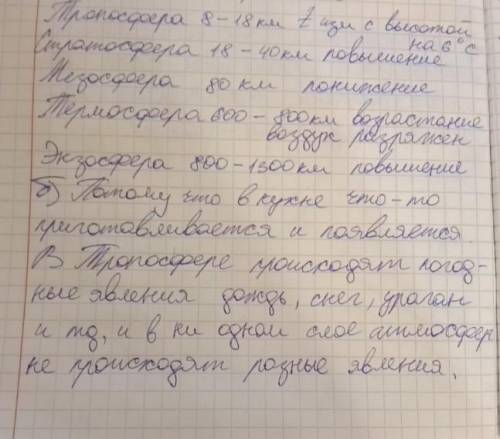 Тропосфера 8-18км t изм с высотой
на 6°С
Стратосфера 18-40км повышение
Мезосфера 80 км понижение
Термосфера 600-800км возрастание
воздух разряжен
Экзосфера 800-1300км повышение
б) Потому что в кухне что-то
приготавливается и появляется.
В Тропосфере происходят погод-
ные явления дождь, снег, ураган
и тд, и в ни одном слое атмосфер
не происходят разные явления.